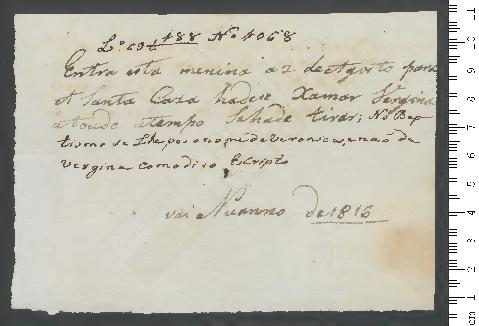 Lº 69 f 188 Nº 1068
Entra esta menina a 2 de Agosto para
a Santa Caza hadese Xamar Vergina
atoudo otempo Sehade tirar; No Bap
tismo se Lhe pos o nome de Veronica, e não de
Vergina Como diz o Escripto
vai N anno de 1816